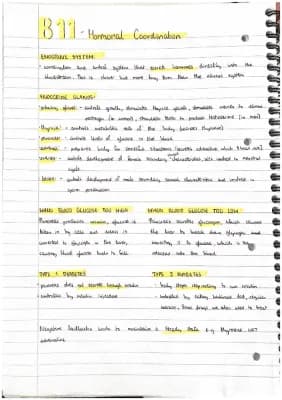 B11 - Hormonal Coordination
ENDOCRINE SYSTEM:
- communication and control system that secretes hormones directly into the
bloodstream. This is slower but more long term than the nervous system
ENDOCRINE GLANDS:
- pituitary gland - controls growth, stimulates thyroid glands, stimulates ovaries to
(in women), stimulates testes to produce testosterone (in men)
- thyroid - controls metabolic rate of the body (secretes thyroxine)
- pancreas - controls levels of glucose in the blood
- adrenal - prepares body for stressful situations (secretes adrenaline which
- ovaries - controls development of female secondary characteristics, and involved in menstrual
cycle
- testes - controls development of male secondary sexual characteristics and involved in
sperm production
WHEN BLOOD GLUCOSE TOO HIGH
Pancreas produces insulin, glucose is
taken in by cells and excess is
converted to glycogen in the liver,
causing blood glucose levels to fall
WHEN BLOOD GLUCOSE TOO LOW
Pancreas secretes glucagon, which causes
the liver to break down glycogen and
converting it to glucose, which is
released into the blood
TYPE 1 DIABETES
- pancreas does not secrete enough insulin
- controlled by insulin injections
TYPE 2 DIABETES
- body stops responding to own insulin
- controlled by eating balanced diet, regular
exercise, drugs are also used to treat
Negative feedback works to maintain a steady state e.g thyroxine, NOT
adrenaline